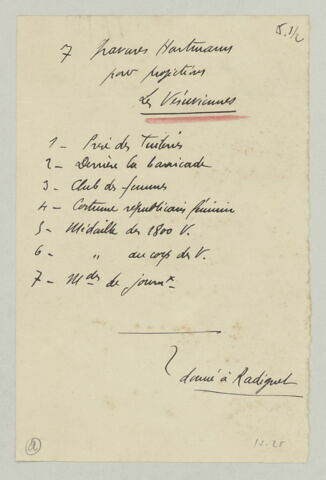 B. 3/2
7 gravures Hartmann
pour projections
Les Vésuviennes
1 - Prise des Tuileries
2 - Derrière la barricade
3 - Club des femmes
4 - Costume républicain féminin
5 - Médaille des 1800 V.
6 - " au corps des V.
7 - Mdes de journx.
donné à Radiguet
a
12-25